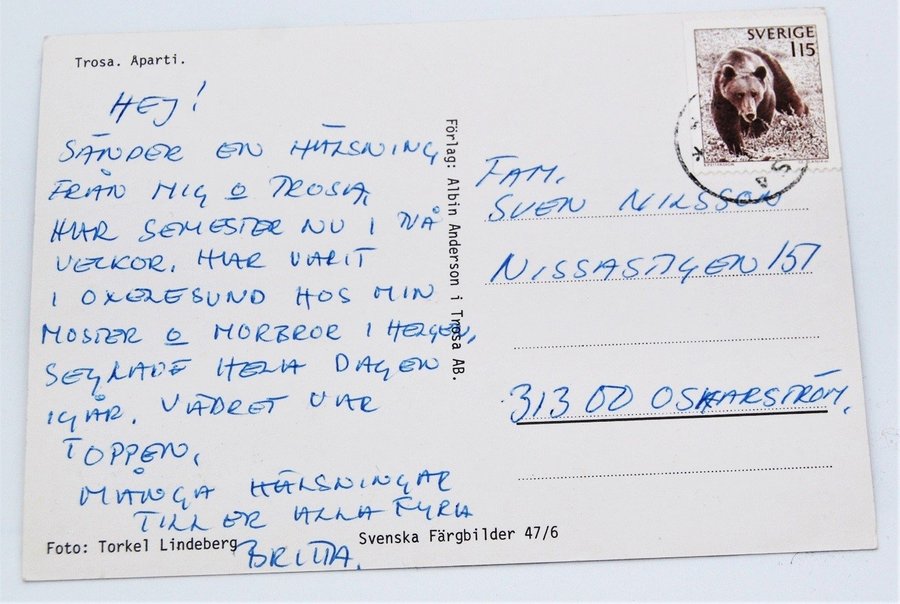 Trosa. Åparti.
HEJ!
SÄNDER EN HÄLSNING
FRÅN MIG O TROSA,
HAR SEMESTER NU I TVÅ
VECKOR. HAR VARIT
I OXELESUND HOS MIN
MOSTER O MORBROR I HELGEN,
SEGLADE HELA DAGEN
IGÅR. VÄDRET VAR
TOPPEN,
MÅNGA HÄLSNINGAR
TILL ER ALLA FYRA
BRITTA.
Foto: Torkel Lindeberg
Svenska Färgbilder 47/6
Förlag: Albin Anderson i Trosa AB.
SVERIGE
115
FAM.
SVEN NILSSON
NISSASTIGEN 151
313 00 OSKARSTRÖM.